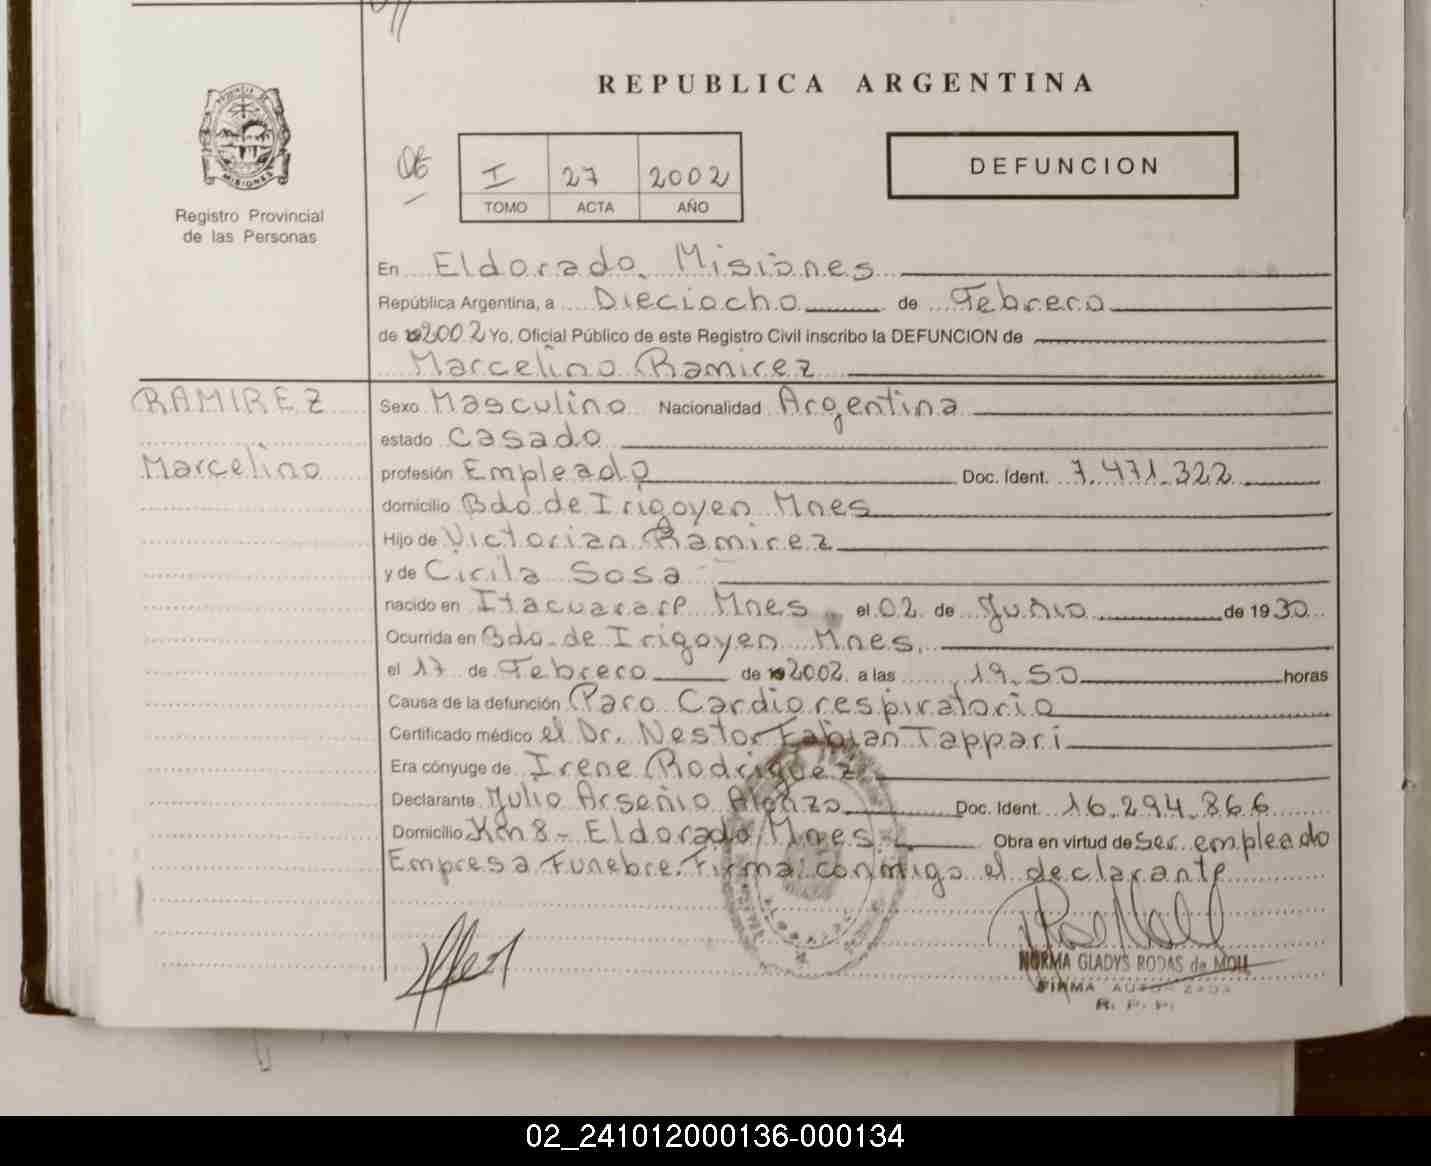 REPUBLICA ARGENTINA
DEFUNCION
I 27 2002
TOMO ACTA AÑO
MISIONES
Registro Provincial
de las Personas
En Eldorado, Misiones
República Argentina, a Dieciocho de Febrero
de 2002 Yo, Oficial Público de este Registro Civil inscribo la DEFUNCION de
Marcelino Ramirez
RAMIREZ
Marcelino
Sexo Masculino Nacionalidad Argentina
estado Casado
profesión Empleado Doc. Ident. 7.471.322
domicilio Bdo de Irigoyen Mnes
Hijo de Victorian Ramirez
y de Cirila Sosa
nacido en Itacuarare Mnes el 02 de Junio de 1930
Ocurrida en Bdo. de Irigoyen Mnes.
el 17 de Febrero de 2002 a las 19.50 horas
Causa de la defunción Paro Cardiorespiratorio
Certificado médico el Dr. Nestor Fabian Tappari
Era cónyuge de Irene Rodriguez
Declarante Julio Arsenio Alonzo Doc. Ident. 16.294.866
Domicilio Km 8 - Eldorado Mnes. Obra en virtud de Ser empleado
Empresa Funebre. Firma conmigo el declarante
NORMA GLADYS RODAS de MOLL
FIRMA AUTORIZADA
R. P. P.
02_241012000136-000134